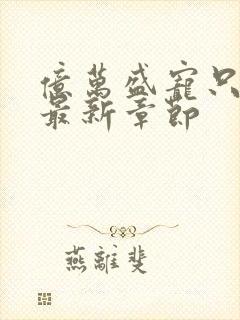 億萬盛寵只
最新章節
燕離斐